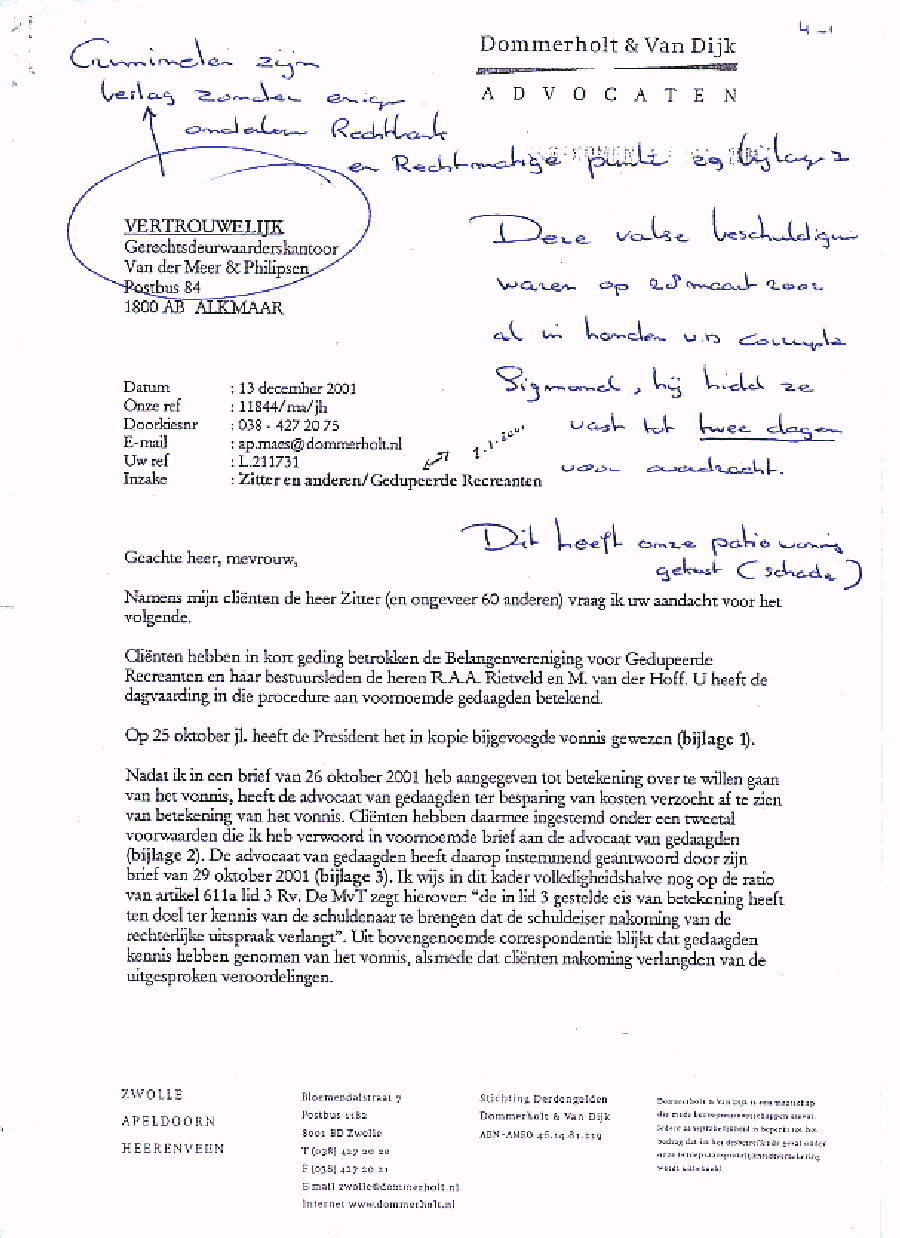 4-1
Dommerholt & Van Dijk
ADVOCATEN
Criminelen zijn
beslag zonder enige
onderdelen Rechtbank
en Rechtmatige punt zg bijlage 2
VERTROUWELIJK
Gerechtsdeurwaarderskantoor
Van der Meer & Philipsen
Postbus 84
1800 AB ALKMAAR
Deze valse beschuldigin
waren op 28 maart 2002
al in handen v.d corrupte
Sigmond, hij hield ze
vast tot twee dagen
voor overdracht.
Datum : 13 december 2001
Onze ref : 11844/ma/jh
Doorkiesnr : 038 - 427 20 75
E-mail : ap.maes@dommerholt.nl
Uw ref : L.211731
Inzake : Zitter en anderen/Gedupeerde Recreanten
Dit heeft onze patio woning
gekost (schade)
Geachte heer, mevrouw,
Namens mijn cliënten de heer Zitter (en ongeveer 60 anderen) vraag ik uw aandacht voor het
volgende.
Cliënten hebben in kort geding betrokken de Belangenvereniging voor Gedupeerde
Recreanten en haar bestuursleden de heren R.A.A. Rietveld en M. van der Hoff. U heeft de
dagvaarding in die procedure aan voornoemde gedaagden betekend.
Op 25 oktober jl. heeft de President het in kopie bijgevoegde vonnis gewezen (bijlage 1).
Nadat ik in een brief van 26 oktober 2001 heb aangegeven tot betekening over te willen gaan
van het vonnis, heeft de advocaat van gedaagden ter besparing van kosten verzocht af te zien
van betekening van het vonnis. Cliënten hebben daarmee ingestemd onder een tweetal
voorwaarden die ik heb verwoord in voornoemde brief aan de advocaat van gedaagden
(bijlage 2). De advocaat van gedaagden heeft daarop instemmend geantwoord door zijn
brief van 29 oktober 2001 (bijlage 3). Ik wijs in dit kader volledigheidshalve nog op de ratio
van artikel 611a lid 3 Rv. De MvT zegt hierover: "de in lid 3 gestelde eis van betekening heeft
ten doel ter kennis van de schuldenaar te brengen dat de schuldeiser nakoming van de
rechterlijke uitspraak verlangt". Uit bovengenoemde correspondentie blijkt dat gedaagden
kennis hebben genomen van het vonnis, alsmede dat cliënten nakoming verlangden van de
uitgesproken veroordelingen.
ZWOLLE
APELDOORN
HEERENVEEN
Bloemendalstraat 7
Postbus 1182
8001 BD Zwolle
T (038) 427 20 20
F (038) 427 20 21
E-mail zwolle@dommerholt.nl
Internet www.dommerholt.nl
Stichting Derdengelden
Dommerholt & Van Dijk
ABN-AMRO 46.14.81.219
Dommerholt & Van Dijk is een maatschap
die mede beroepsvennootschappen omvat.
Iedere aansprakelijkheid is beperkt tot het
bedrag dat in het desbetreffende geval onder
onze beroepsaansprakelijkheidsverzekering
wordt uitbetaald.